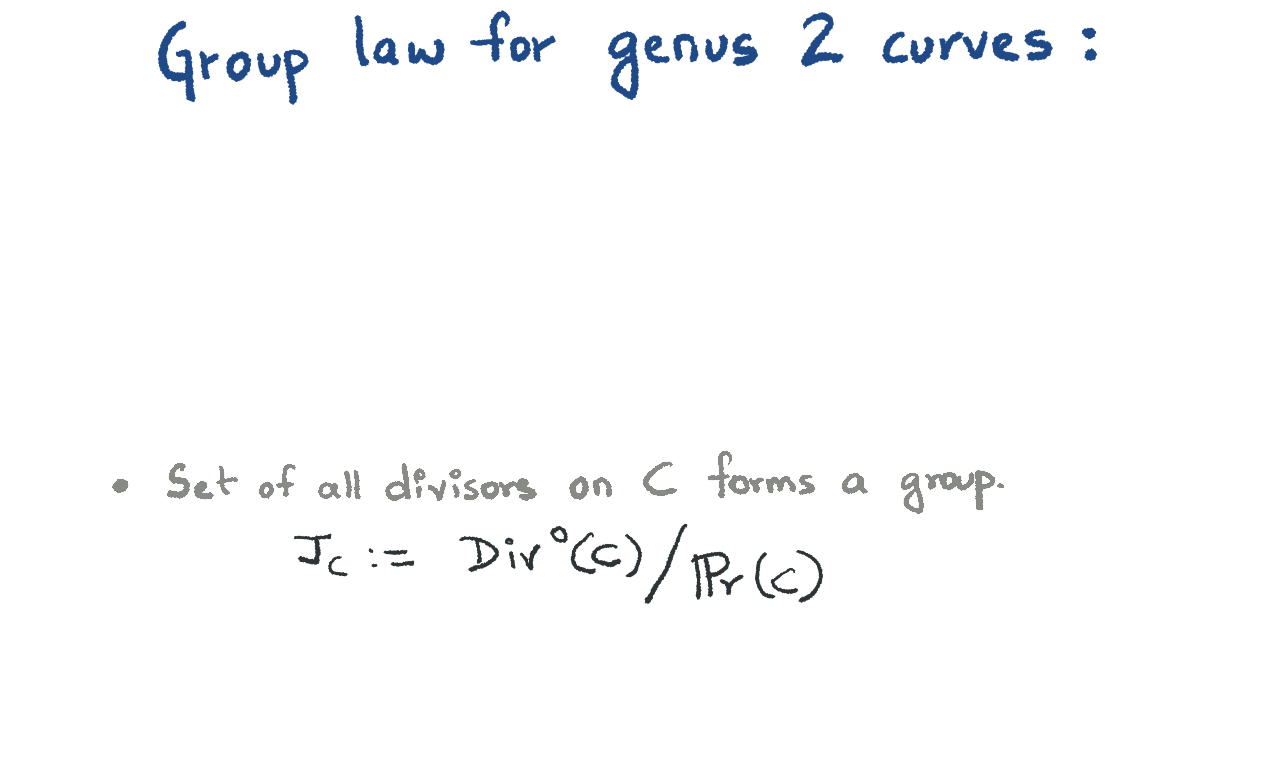 Group law for genus 2 curves :
• Set of all divisors on C forms a group.
J_C := Div°(C)/ℙr(C)